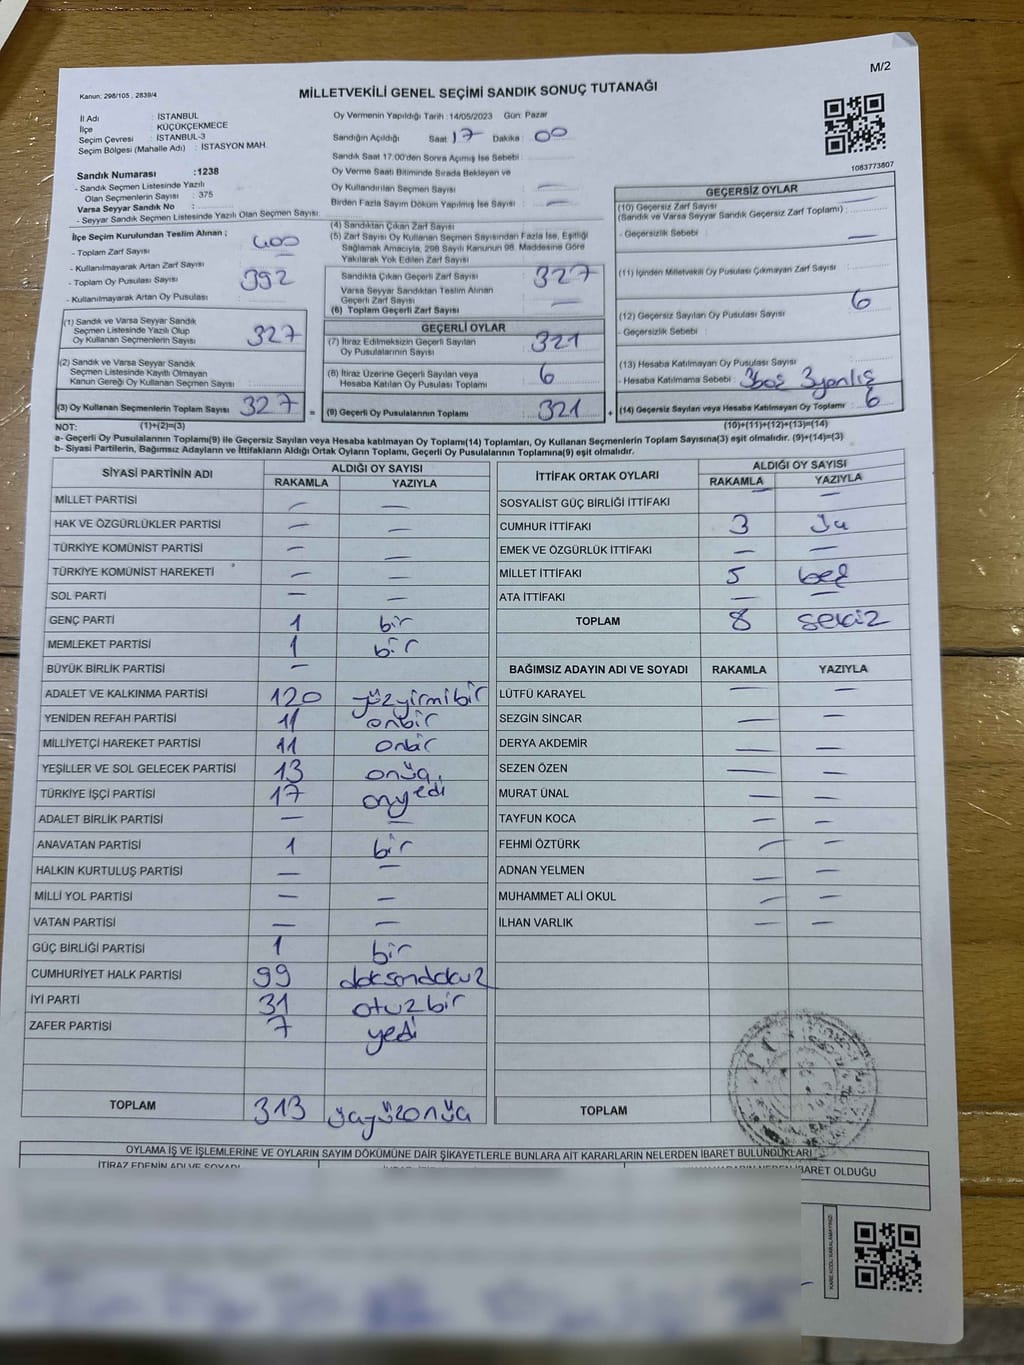 M/2
Kanun: 298/105 , 2839/4
MİLLETVEKİLİ GENEL SEÇİMİ SANDIK SONUÇ TUTANAĞI
İl Adı : İSTANBUL
İlçe : KÜÇÜKÇEKMECE
Seçim Çevresi : İSTANBUL-3
Seçim Bölgesi (Mahalle Adı) : İSTASYON MAH.
Sandık Numarası :1238
- Sandık Seçmen Listesinde Yazılı
Olan Seçmenlerin Sayısı : 375
Varsa Seyyar Sandık No :
- Seyyar Sandık Seçmen Listesinde Yazılı Olan Seçmen Sayısı:
İlçe Seçim Kurulundan Teslim Alınan ;
- Toplam Zarf Sayısı : 400
- Kullanılmayarak Artan Zarf Sayısı : —
- Toplam Oy Pusulası Sayısı : 392
- Kullanılmayarak Artan Oy Pusulası :
(1) Sandık ve Varsa Seyyar Sandık
Seçmen Listesinde Yazılı Olup
Oy Kullanan Seçmenlerin Sayısı : 327
(2) Sandık ve Varsa Seyyar Sandık
Seçmen Listesinde Kayıtlı Olmayan
Kanun Gereği Oy Kullanan Seçmen Sayısı :
(3) Oy Kullanan Seçmenlerin Toplam Sayısı : 327 =
(1)+(2)=(3)
Oy Vermenin Yapıldığı Tarih : 14/05/2023 Gün: Pazar
Sandığın Açıldığı Saat 17 Dakika : 00
Sandık Saat 17:00'den Sonra Açımış İse Sebebi :
Oy Verme Saati Bitiminde Sırada Bekleyen ve
Oy Kullandırılan Seçmen Sayısı : —
Birden Fazla Sayım Döküm Yapılmış İse Sayısı : —
(4) Sandıktan Çıkan Zarf Sayısı
(5) Zarf Sayısı Oy Kullanan Seçmen Sayısından Fazla İse, Eşitliği
Sağlamak Amacıyla, 298 Sayılı Kanunun 98. Maddesine Göre
Yakılarak Yok Edilen Zarf Sayısı :
Sandıkta Çıkan Geçerli Zarf Sayısı : 327
Varsa Seyyar Sandıktan Teslim Alınan
Geçerli Zarf Sayısı : —
(6) Toplam Geçerli Zarf Sayısı :
GEÇERLİ OYLAR
(7) İtiraz Edilmeksizin Geçerli Sayılan
Oy Pusulalarının Sayısı : 321
(8) İtiraz Üzerine Geçerli Sayılan veya
Hesaba Katılan Oy Pusulası Toplamı : 6
(9) Geçerli Oy Pusulalarının Toplamı : 321 +
1083773807
GEÇERSİZ OYLAR
(10) Geçersiz Zarf Sayısı
(Sandık ve Varsa Seyyar Sandık Geçersiz Zarf Toplamı) : —
- Geçersizlik Sebebi : —
(11) İçinden Milletvekili Oy Pusulası Çıkmayan Zarf Sayısı :
(12) Geçersiz Sayılan Oy Pusulası Sayısı : 6
- Geçersizlik Sebebi :
(13) Hesaba Katılmayan Oy Pusulası Sayısı :
- Hesaba Katılmama Sebebi : 3boş 3yanlış
(14) Geçersiz Sayılan veya Hesaba Katılmayan Oy Toplamı : 6
(10)+(11)+(12)+(13)=(14)
NOT:
a- Geçerli Oy Pusulalarının Toplamı(9) ile Geçersiz Sayılan veya Hesaba katılmayan Oy Toplamı(14) Toplamları, Oy Kullanan Seçmenlerin Toplam Sayısına(3) eşit olmalıdır. (9)+(14)=(3)
b- Siyasi Partilerin, Bağımsız Adayların ve İttifakların Aldığı Ortak Oyların Toplamı, Geçerli Oy Pusulalarının Toplamına(9) eşit olmalıdır.
SİYASİ PARTİNİN ADI ALDIĞI OY SAYISI
RAKAMLA YAZIYLA
MİLLET PARTİSİ — —
HAK VE ÖZGÜRLÜKLER PARTİSİ — —
TÜRKİYE KOMÜNİST PARTİSİ — —
TÜRKİYE KOMÜNİST HAREKETİ — —
SOL PARTİ — —
GENÇ PARTİ 1 bir
MEMLEKET PARTİSİ 1 bir
BÜYÜK BİRLİK PARTİSİ —
ADALET VE KALKINMA PARTİSİ 120 yüzyirmibir
YENİDEN REFAH PARTİSİ 11 onbir
MİLLİYETÇİ HAREKET PARTİSİ 11 onbir
YEŞİLLER VE SOL GELECEK PARTİSİ 13 onüç
TÜRKİYE İŞÇİ PARTİSİ 17 onyedi
ADALET BİRLİK PARTİSİ — —
ANAVATAN PARTİSİ 1 bir
HALKIN KURTULUŞ PARTİSİ — —
MİLLİ YOL PARTİSİ — —
VATAN PARTİSİ — —
GÜÇ BİRLİĞİ PARTİSİ 1 bir
CUMHURİYET HALK PARTİSİ 99 doksandokuz
İYİ PARTİ 31 otuzbir
ZAFER PARTİSİ 7 yedi
TOPLAM 313 üçyüzonüç
İTTİFAK ORTAK OYLARI ALDIĞI OY SAYISI
RAKAMLA YAZIYLA
SOSYALİST GÜÇ BİRLİĞİ İTTİFAKI — —
CUMHUR İTTİFAKI 3 üç
EMEK VE ÖZGÜRLÜK İTTİFAKI — —
MİLLET İTTİFAKI 5 beş
ATA İTTİFAKI — —
TOPLAM 8 sekiz
BAĞIMSIZ ADAYIN ADI VE SOYADI RAKAMLA YAZIYLA
LÜTFÜ KARAYEL — —
SEZGİN SİNCAR — —
DERYA AKDEMİR — —
SEZEN ÖZEN — —
MURAT ÜNAL — —
TAYFUN KOCA — —
FEHMİ ÖZTÜRK — —
ADNAN YELMEN — —
MUHAMMET ALİ OKUL — —
İLHAN VARLIK — —
TOPLAM
T.C.
OYLAMA İŞ VE İŞLEMLERİNE VE OYLARIN SAYIM DÖKÜMÜNE DAİR ŞİKAYETLERLE BUNLARA AİT KARARLARIN NELERDEN İBARET BULUNDUKLARI
İTİRAZ EDENİN ADI VE SOYADI
İBARET OLDUĞU